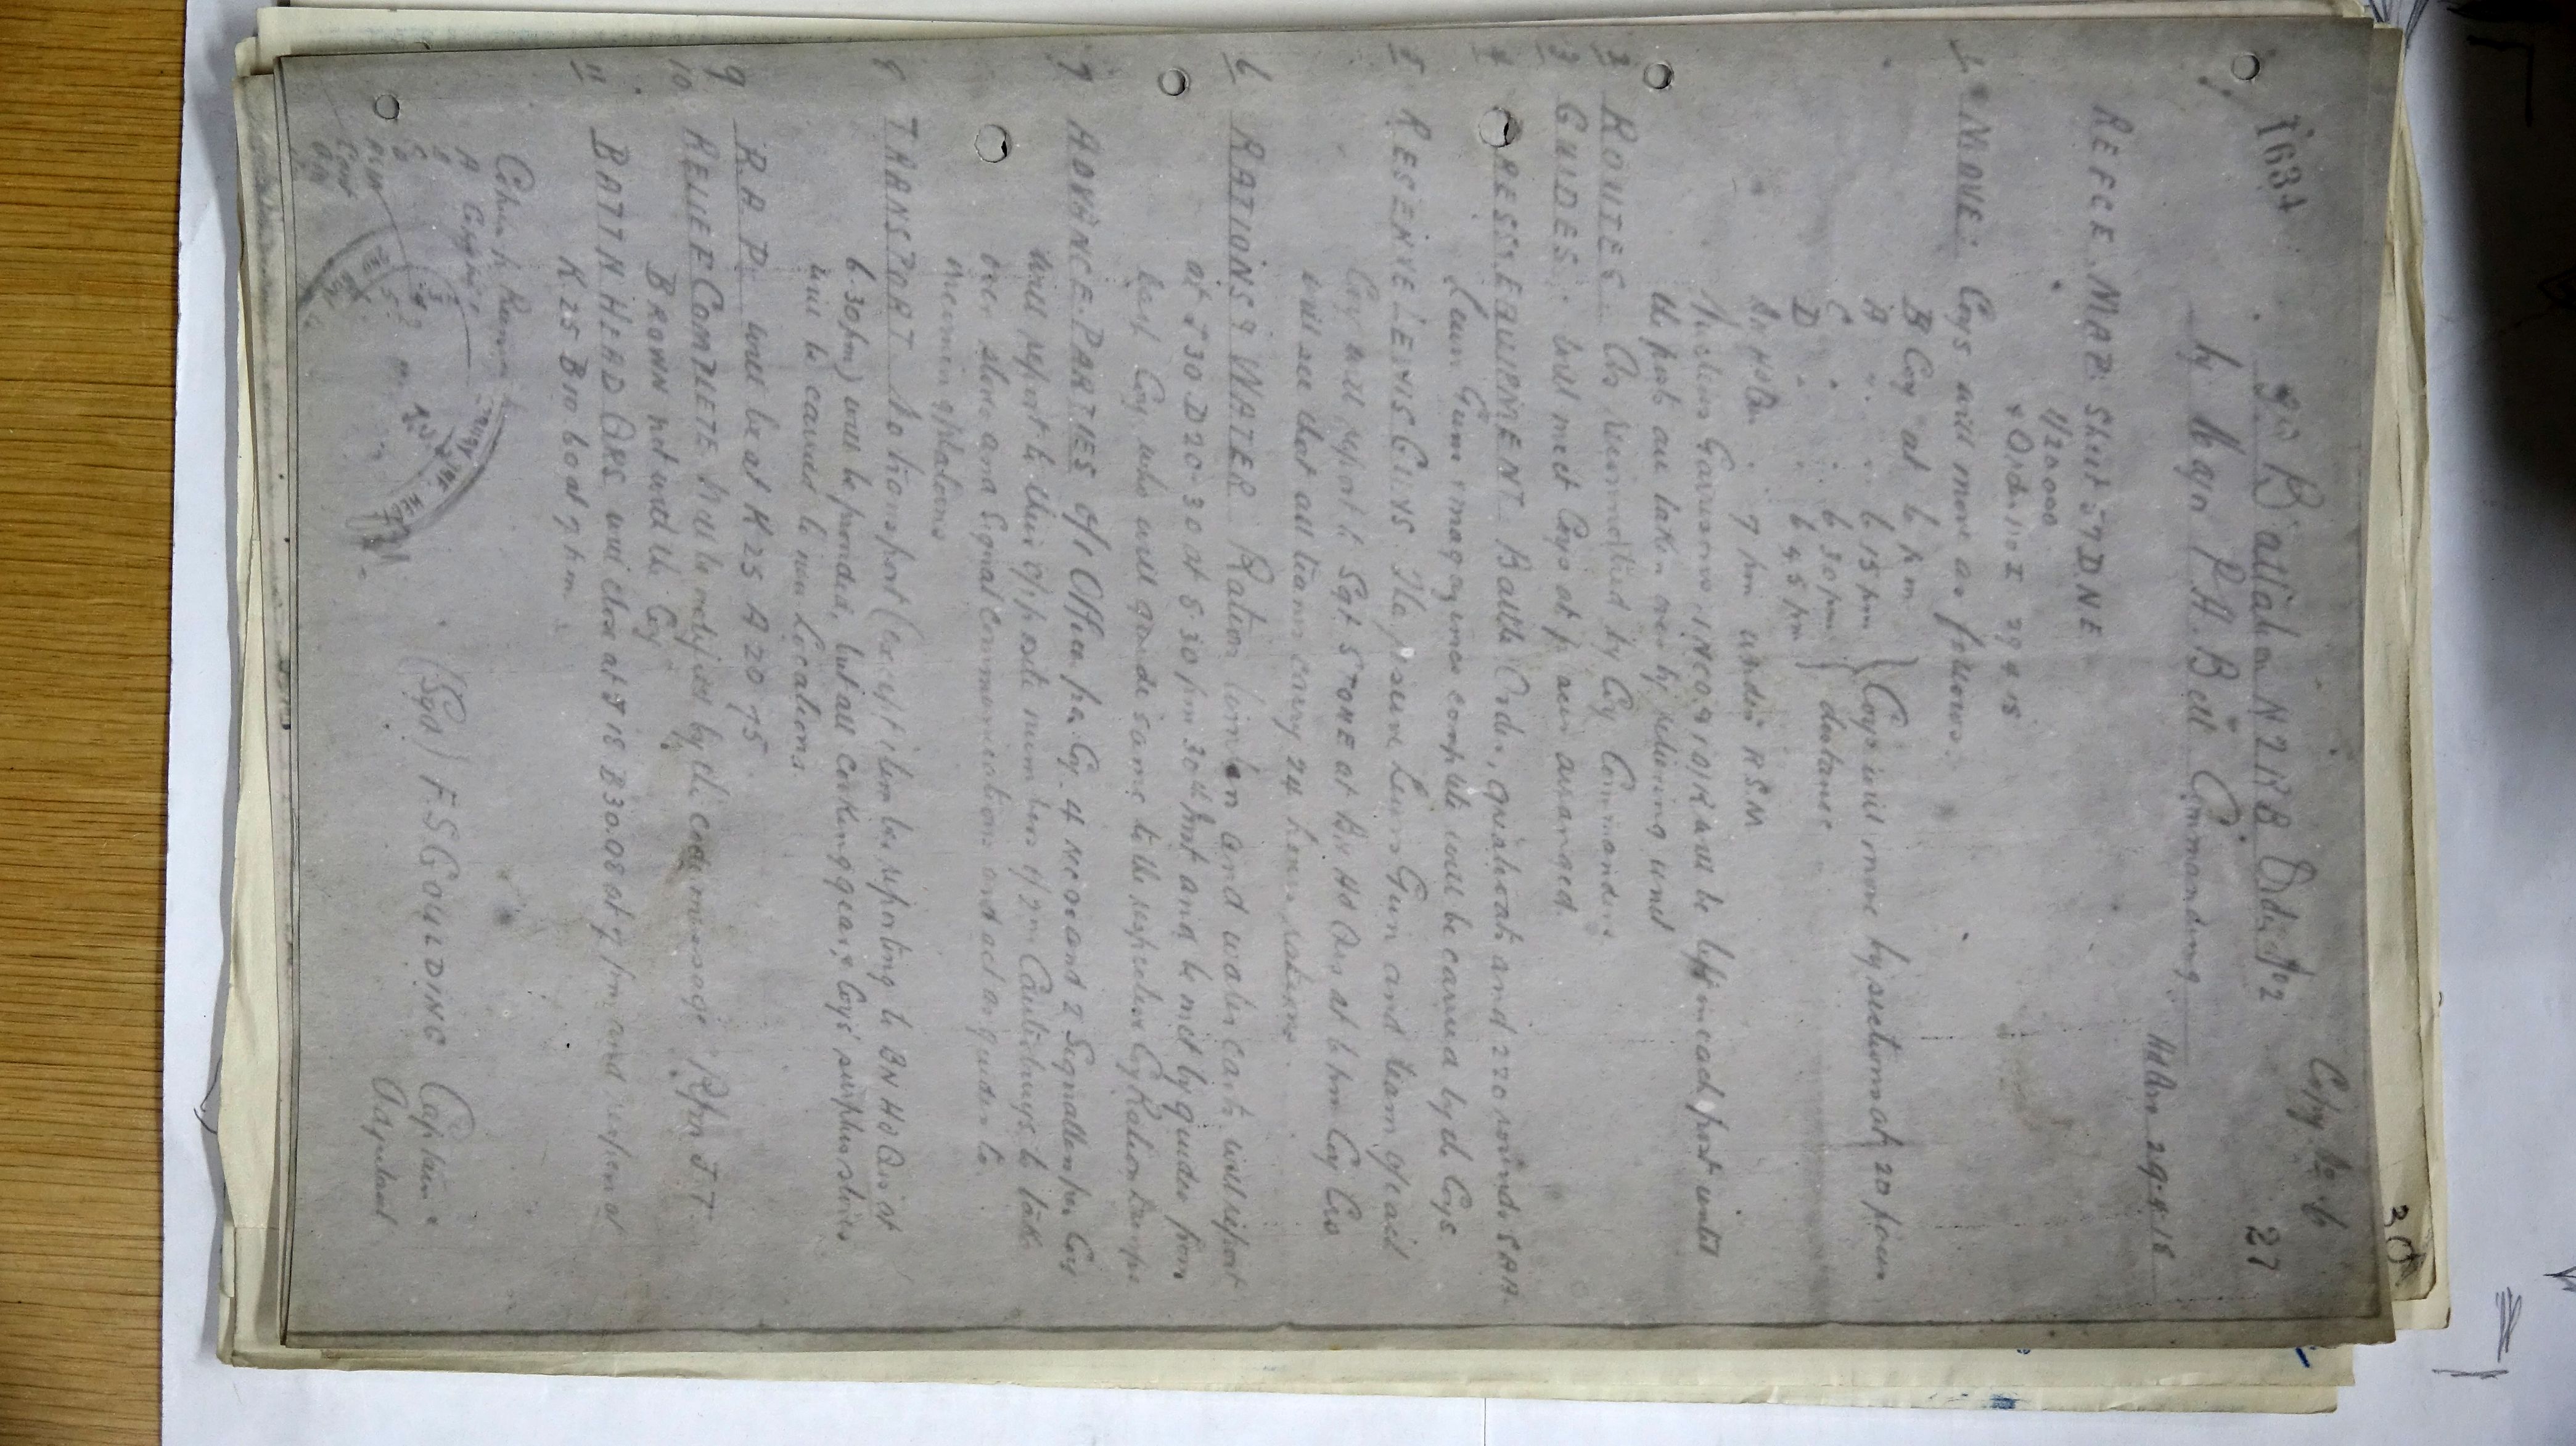 1634
Copy No 6
30
27
3rd Battalion N Z R B Order No 2
by Major P. H. Bell Commanding
29.4.18
REFCE. MAP: Sheet 57D NE
1/20000
& Order No 1 29.4.18
1 MOVE: Coys will move as follows:
B Coy at 6 pm
A " " 6 15 pm } Coys will move by sections at 20 paces
C " " 6 30 pm } distance
D " " 6 45 pm
7 pm under RSM
Garrisons 1 NCO & 10 OR will be left in each post until
the posts are taken over by relieving unit
2 ROUTES: As reconnoitred by Coy Commanders
3 GUIDES: will meet Coys at places arranged.
4 DRESS & EQUIPMENT Battle Order, greatcoats and 220 rounds SAA.
Lewis Gun magazines complete will be carried by the Coys.
5 RESERVE LEWIS GUNS The reserve Lewis Gun and team of each
Coy will report to Sgt STONE at Bn Hd Qrs at 6 pm Coy Cos
will see that all teams carry 24 hours rations.
6 RATIONS & WATER Ration limbers and water carts will report
at J 30 D 20 30 at 8 30 pm 30th inst and be met by guides from
each Coy who will guide same to the respective Coy Ration Dumps
7 ADVANCE PARTIES of 1 Officer per Coy. 4 NCOs and 2 Signallers per Coy
will report to their opposite numbers of 2nd Canterburys to take
over stores and Signal Communications and act as guides to
incoming platoons
8 TRANSPORT No transport (except limbers reporting to BN Hd Qrs at
6.30 pm) will be provided, but all cooking gear & Coys' surplus stores
will be carried to new locations
9 R. A. P. will be at K 25 A 20 75
10 RELIEF COMPLETE will be notified by the code message Rfm J. T.
BROWN not with the Coy
11 BATTN HEAD QRS will close at J 18 B 30.08 at 7 pm and reopen at
K 25 B 10 60 at 7 pm
(Sgd) F. S GOULDING Captain &
Adjutant
A Coy